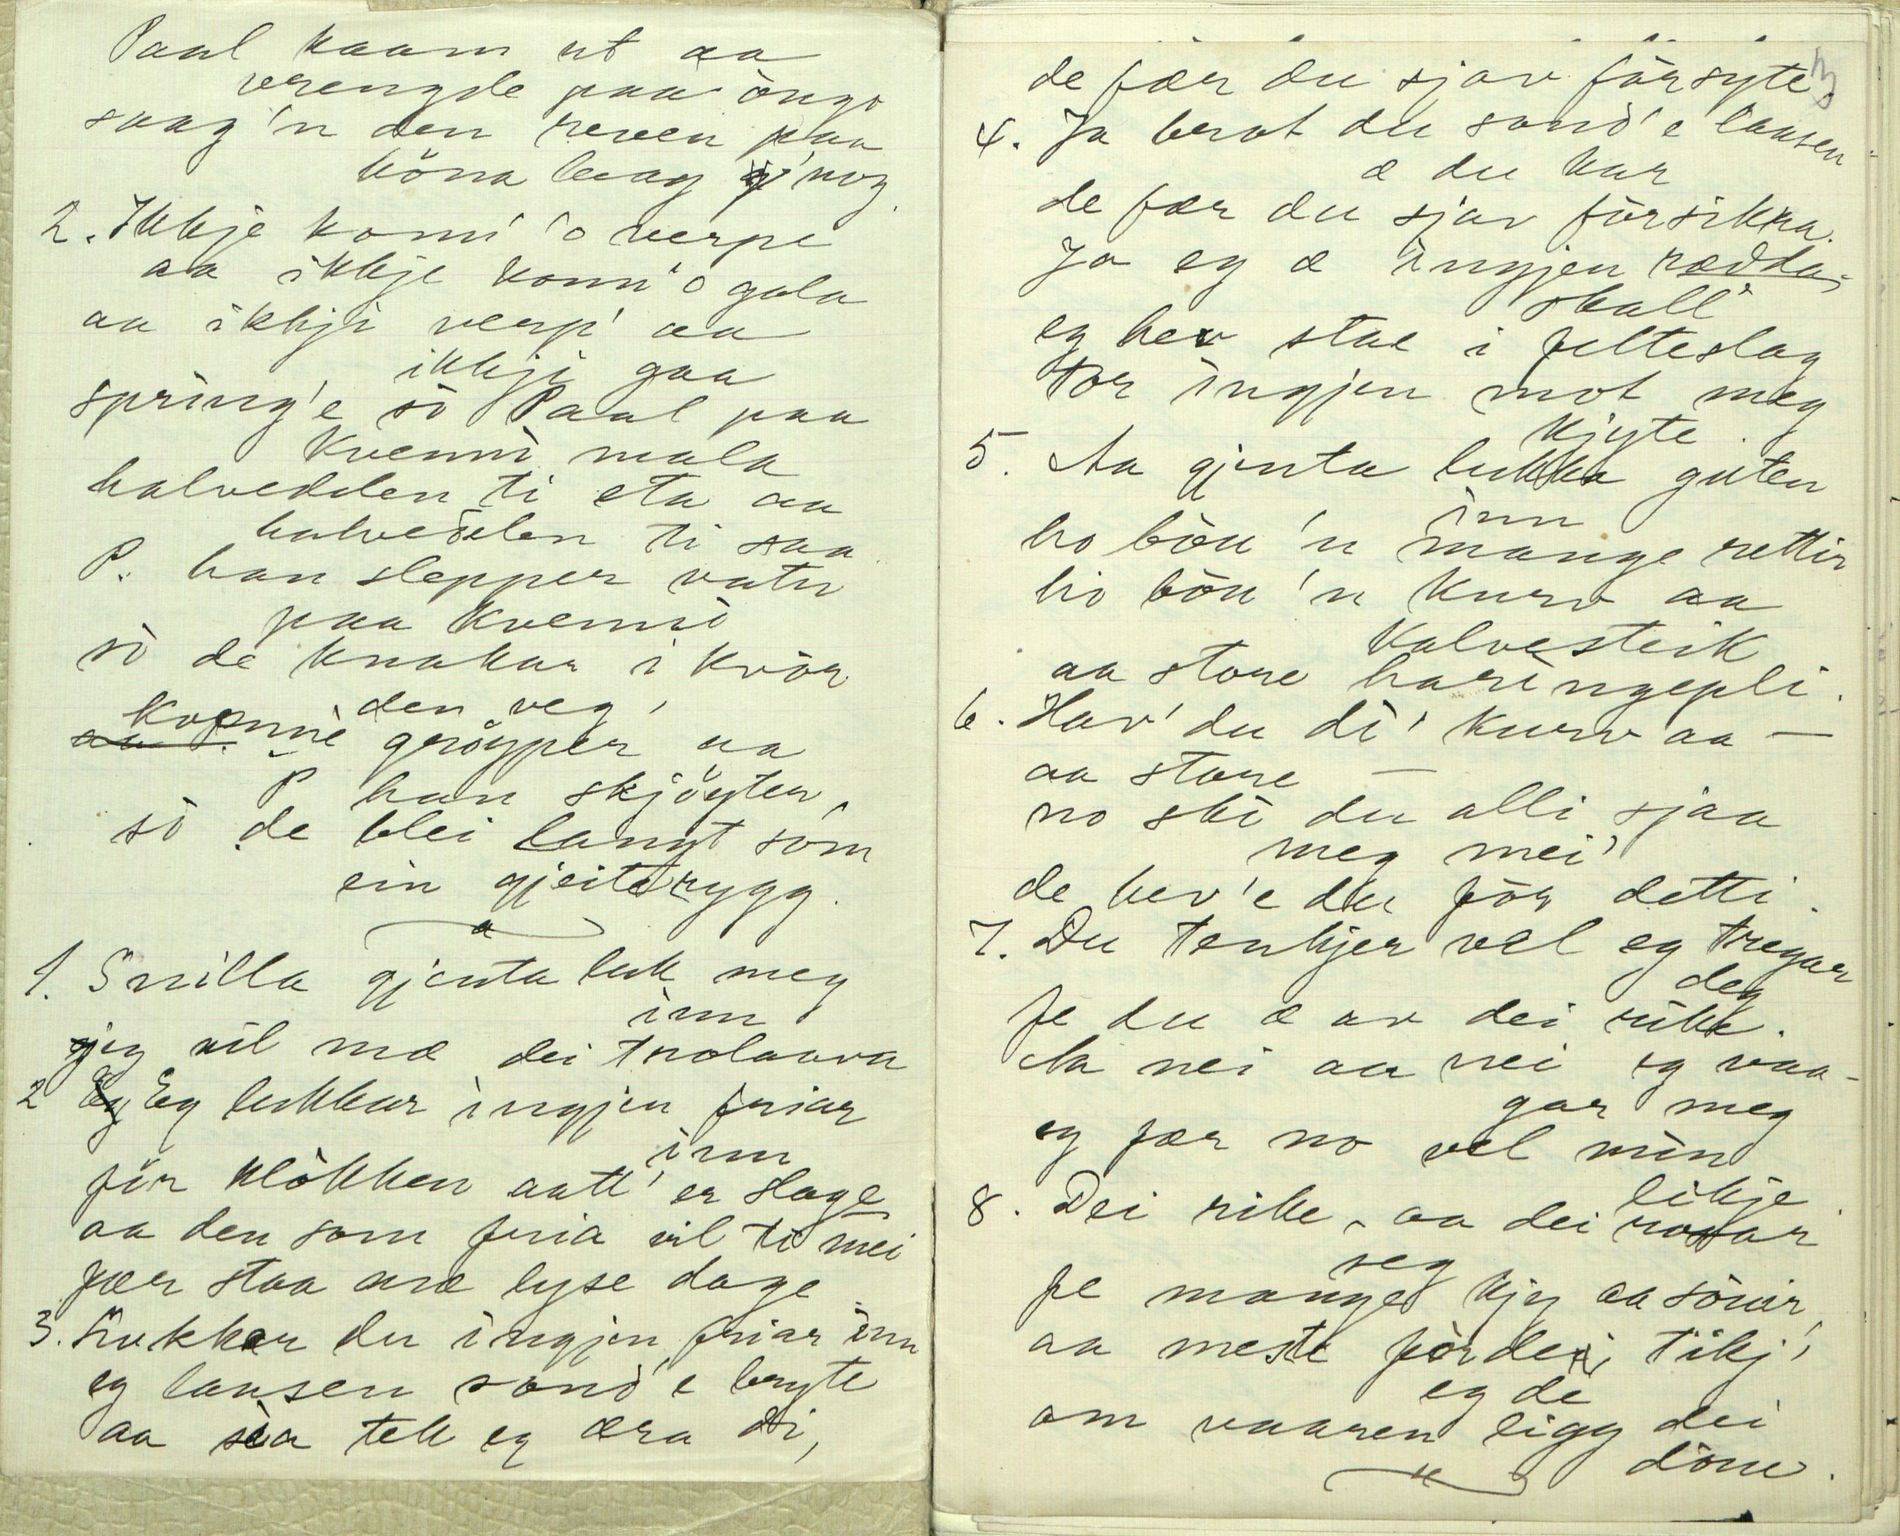 Paal kaam ut aa
vrengde paa òngo
saag'n den reven paa
höna laag o' nog.
2. Ikkje konn' 'o verpe
aa ikkje konn' o gala
aa ikkji verp' aa
ikkji gaa
spring'e sò Paal paa
kvenni mala
halvedelen ti eta aa
halvedelen ti saa
P. han slepper vatn
paa kvennè
sò de knakar i kvòr
den veg,
kvennè gröypper aa
P han skjöyter
sò de blei langt sòm
ein gjeiterygg.
1. Snilla gjenta luk meg
inn
jeg vil mæ dei trolaava
2 Eg lukkar ingjen friar
inn
för klòkken aatt' er slage
aa den som fria vil ti mei
fær staa mæ lyse dage
3. Lukker du ingjen friar inn
eg laasen sond'e bryte
aa sia tek eg æra di,
de fær du sjav försyte.
4. Ja brot du sond'e laasen
æ du kar
de fær du sjav försikka.
Ja eg æ ingjen rædda-
skall'
eg hev stae i felteslag
tor ingjen mot meg
kjyte.
5. Aa gjenta lukka guten
inn
ho bòu'n mange rettir
ho bòu'n kurv aa
kalvesteik
aa store haringepli.
6. Hav' du di' kurv aa —
aa store —
no ski du alli sjaa
meg mei'
de hev'e du fòr detti.
7. Du tenkjer vel eg tregar
deg
fe du æ av dei rike.
Aa nei aa nei eg vaa-
gar meg
eg fær no vel min
likje
8. Dei rike, aa dei rosar
seg
fe mange kjy aa söuir,
aa meste fòrdei, tikj'
eg de
om vaaren ligg dei
döue.